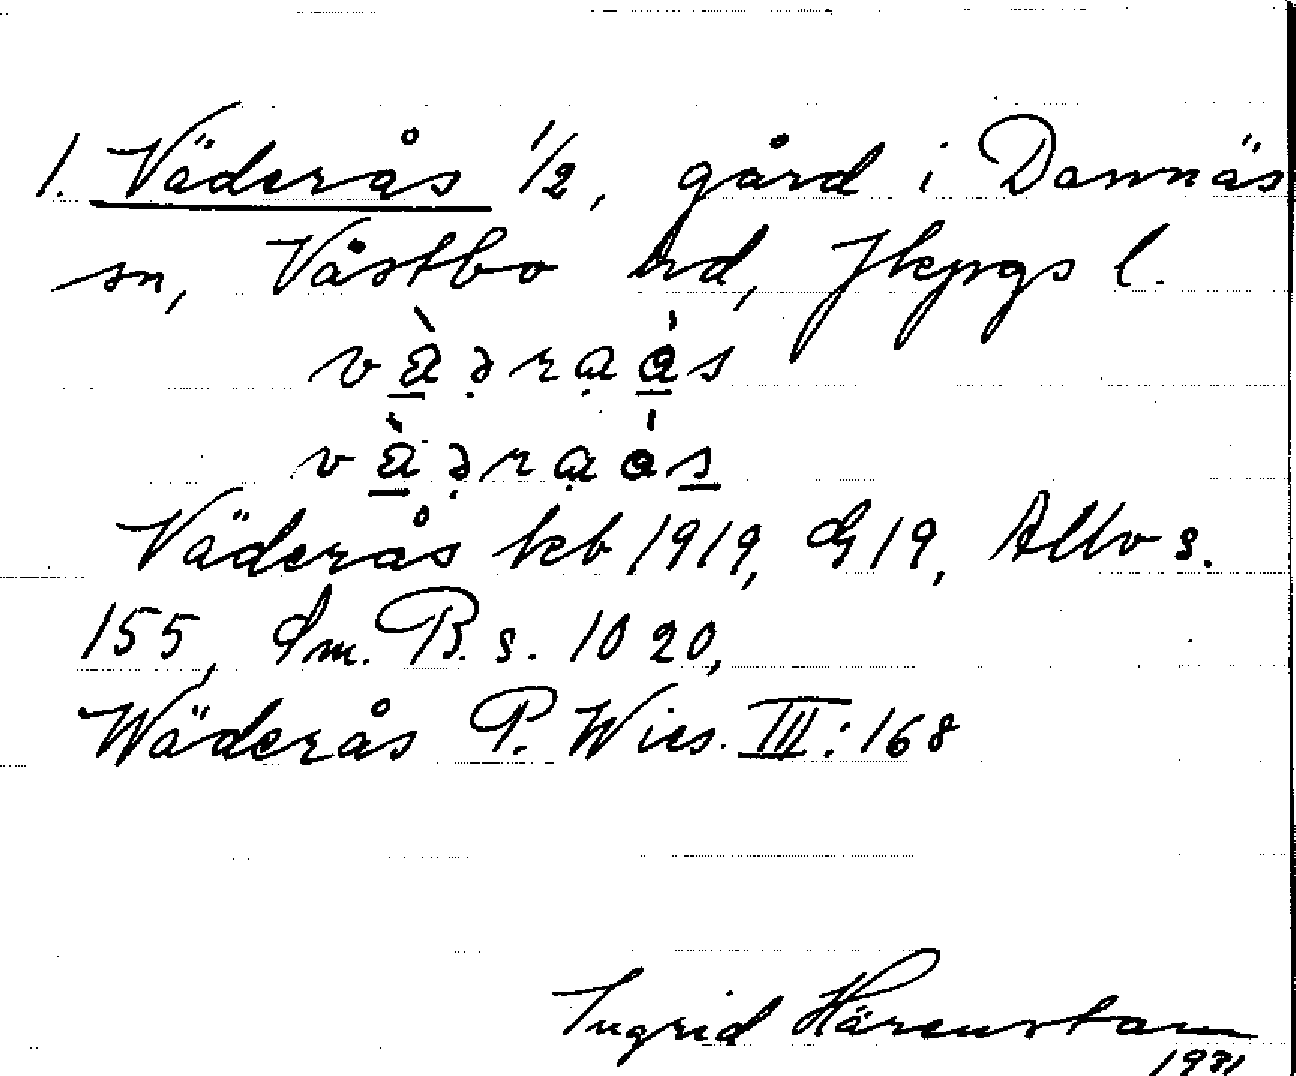 1. Väderås 1/2, gård i Dannäs
sn, Västbo hd, Jkpgs l.
Väderås kb 1919, G 19, Allvo s.
155, Sm. B. s. 1020,
Wäderås P. Wies. III: 168
Ingrid Härenstam
1931